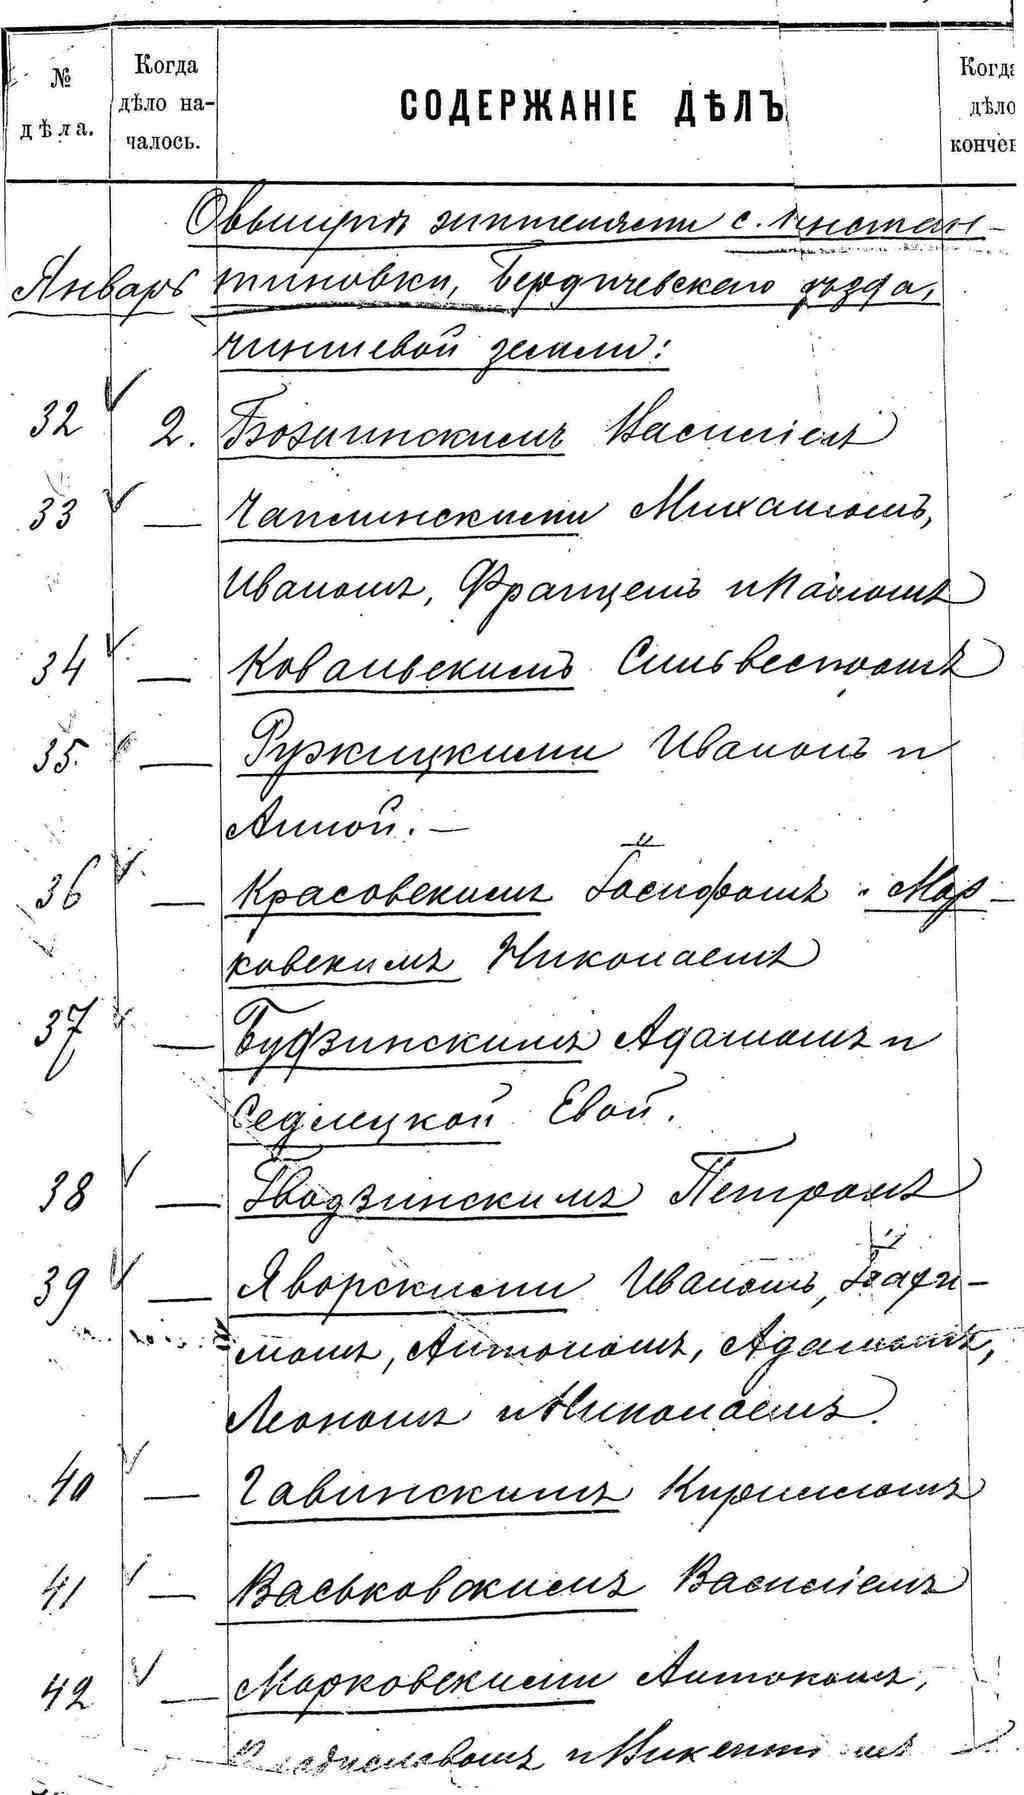 № дѣла.
Когда дѣло началось.
СОДЕРЖАНІЕ ДѢЛЪ
Когда дѣло кончен
О выкупѣ жителями с. Констан-
Январь тиновки, Бердичевскаго уѣзда,
чиншевой земли:
32 2. Бозминскимъ Василіемъ
33 — Чаплинскими Михаиломъ,
Иваномъ, Францемъ и Павломъ
34 — Ковальскимъ Сильвестромъ
35. — Ружицкими Иваномъ и
Анной. —
36 — Красовскимъ Іосифомъ и Мар-
ковскимъ Николаемъ
37 — Будзинскимъ Адамомъ и
Седлецкой Евой.
38 — Гводзинскимъ Петромъ
39 — Яворскими Иваномъ,
Антономъ, Адамомъ,
Леономъ и Николаемъ.
40 — Гавинскимъ Кирилломъ
41 — Васьковскимъ Василіемъ
42 — Марковскими Антономъ,
Владиславомъ и Викентіемъ